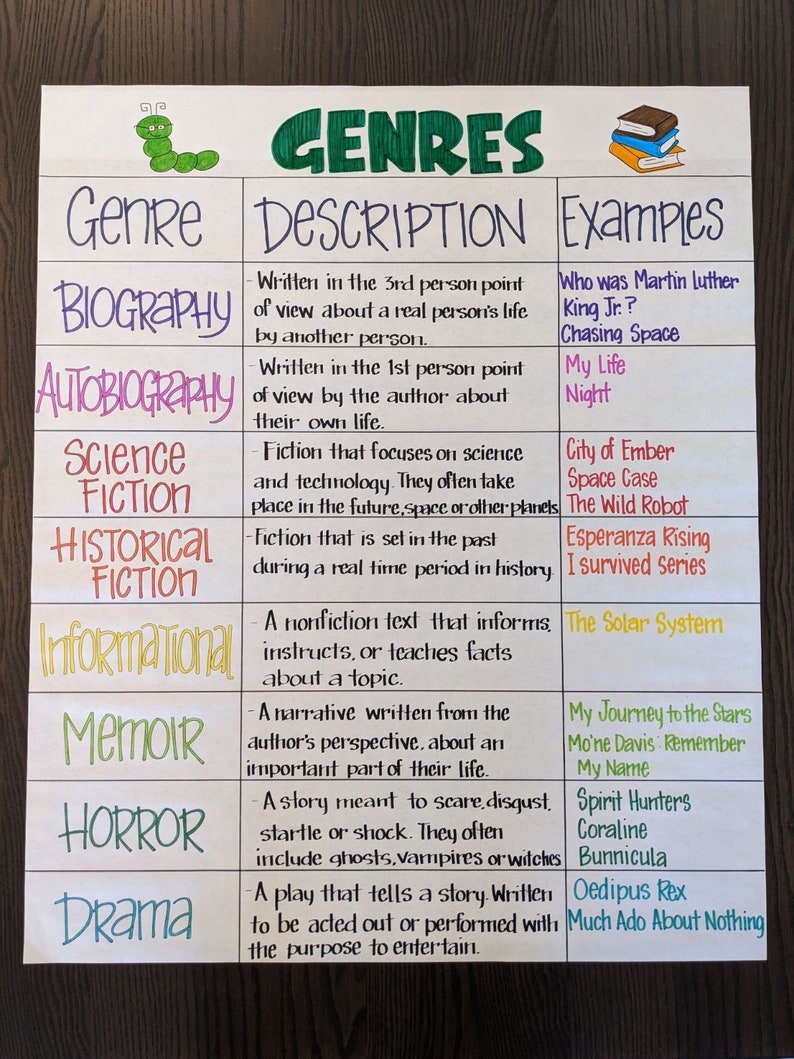 GENRES
Genre
Description
Examples
Biography
- Written in the 3rd person point
of view about a real person's life
by another person.
Who was Martin Luther
King Jr.?
Chasing Space
Autobiography
- Written in the 1st person point
of view by the author about
their own life.
My Life
Night
Science
Fiction
- Fiction that focuses on science
and technology. They often take
place in the future, space or other planets
City of Ember
Space Case
The Wild Robot
Historical
Fiction
- Fiction that is set in the past
during a real time period in history.
Esperanza Rising
I survived Series
Informational
- A nonfiction text that informs,
instructs, or teaches facts
about a topic.
The Solar System
Memoir
- A narrative written from the
author's perspective, about an
important part of their life.
My Journey to the Stars
Mo'ne Davis: Remember
My Name
Horror
- A story meant to scare, disgust,
startle or shock. They often
include ghosts, vampires or witches
Spirit Hunters
Coraline
Bunnicula
Drama
- A play that tells a story. Written
to be acted out or performed with
the purpose to entertain.
Oedipus Rex
Much Ado About Nothing